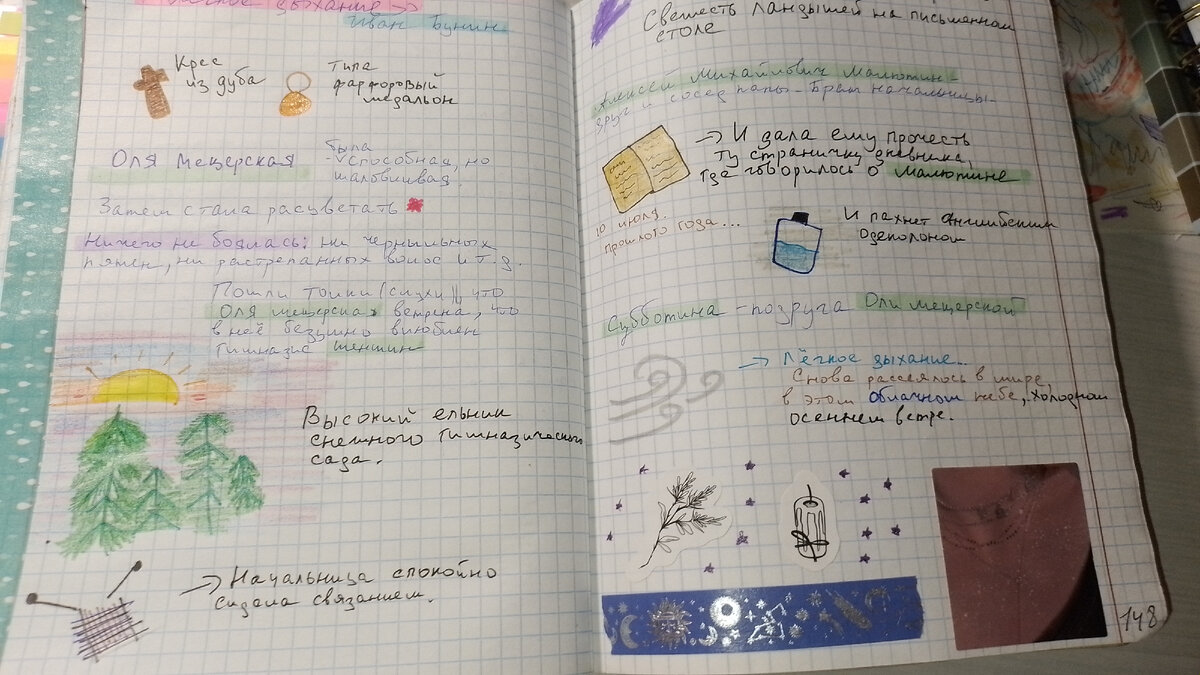 Лёгкое дыхание ->
Иван Бунин
Крес
из дуба
типа
фарфоровый
медальон
Оля Мещерская
была
- способная, но
шаловливая.
Затем стала расцветать
Ничего не боялась: ни чернильных
пятен, ни растрепанных волос и т.д.
Пошли толки (слухи), что
Оля мещерская ветрена, что
в неё безумно влюблен
гимназис шеншин
Высокий ельник
снежного гимназического
сада.
-> Начальница спокойно
сидела с вязанием.
Свежесть ландышей на письменном
столе
Алексей Михайлович Малютин -
друг и сосед папы - Брат начальницы-
-> И дала ему прочесть
ту страничку дневника,
где говорилось о малютине
10 июля.
прошлого года...
И пахнет английским
одеколоном
Субботина - подруга Оли мещерской
-> Лёгкое дыхание..
Снова рассеялось в мире,
в этом облачном небе, холодном
осеннем ветре.
148